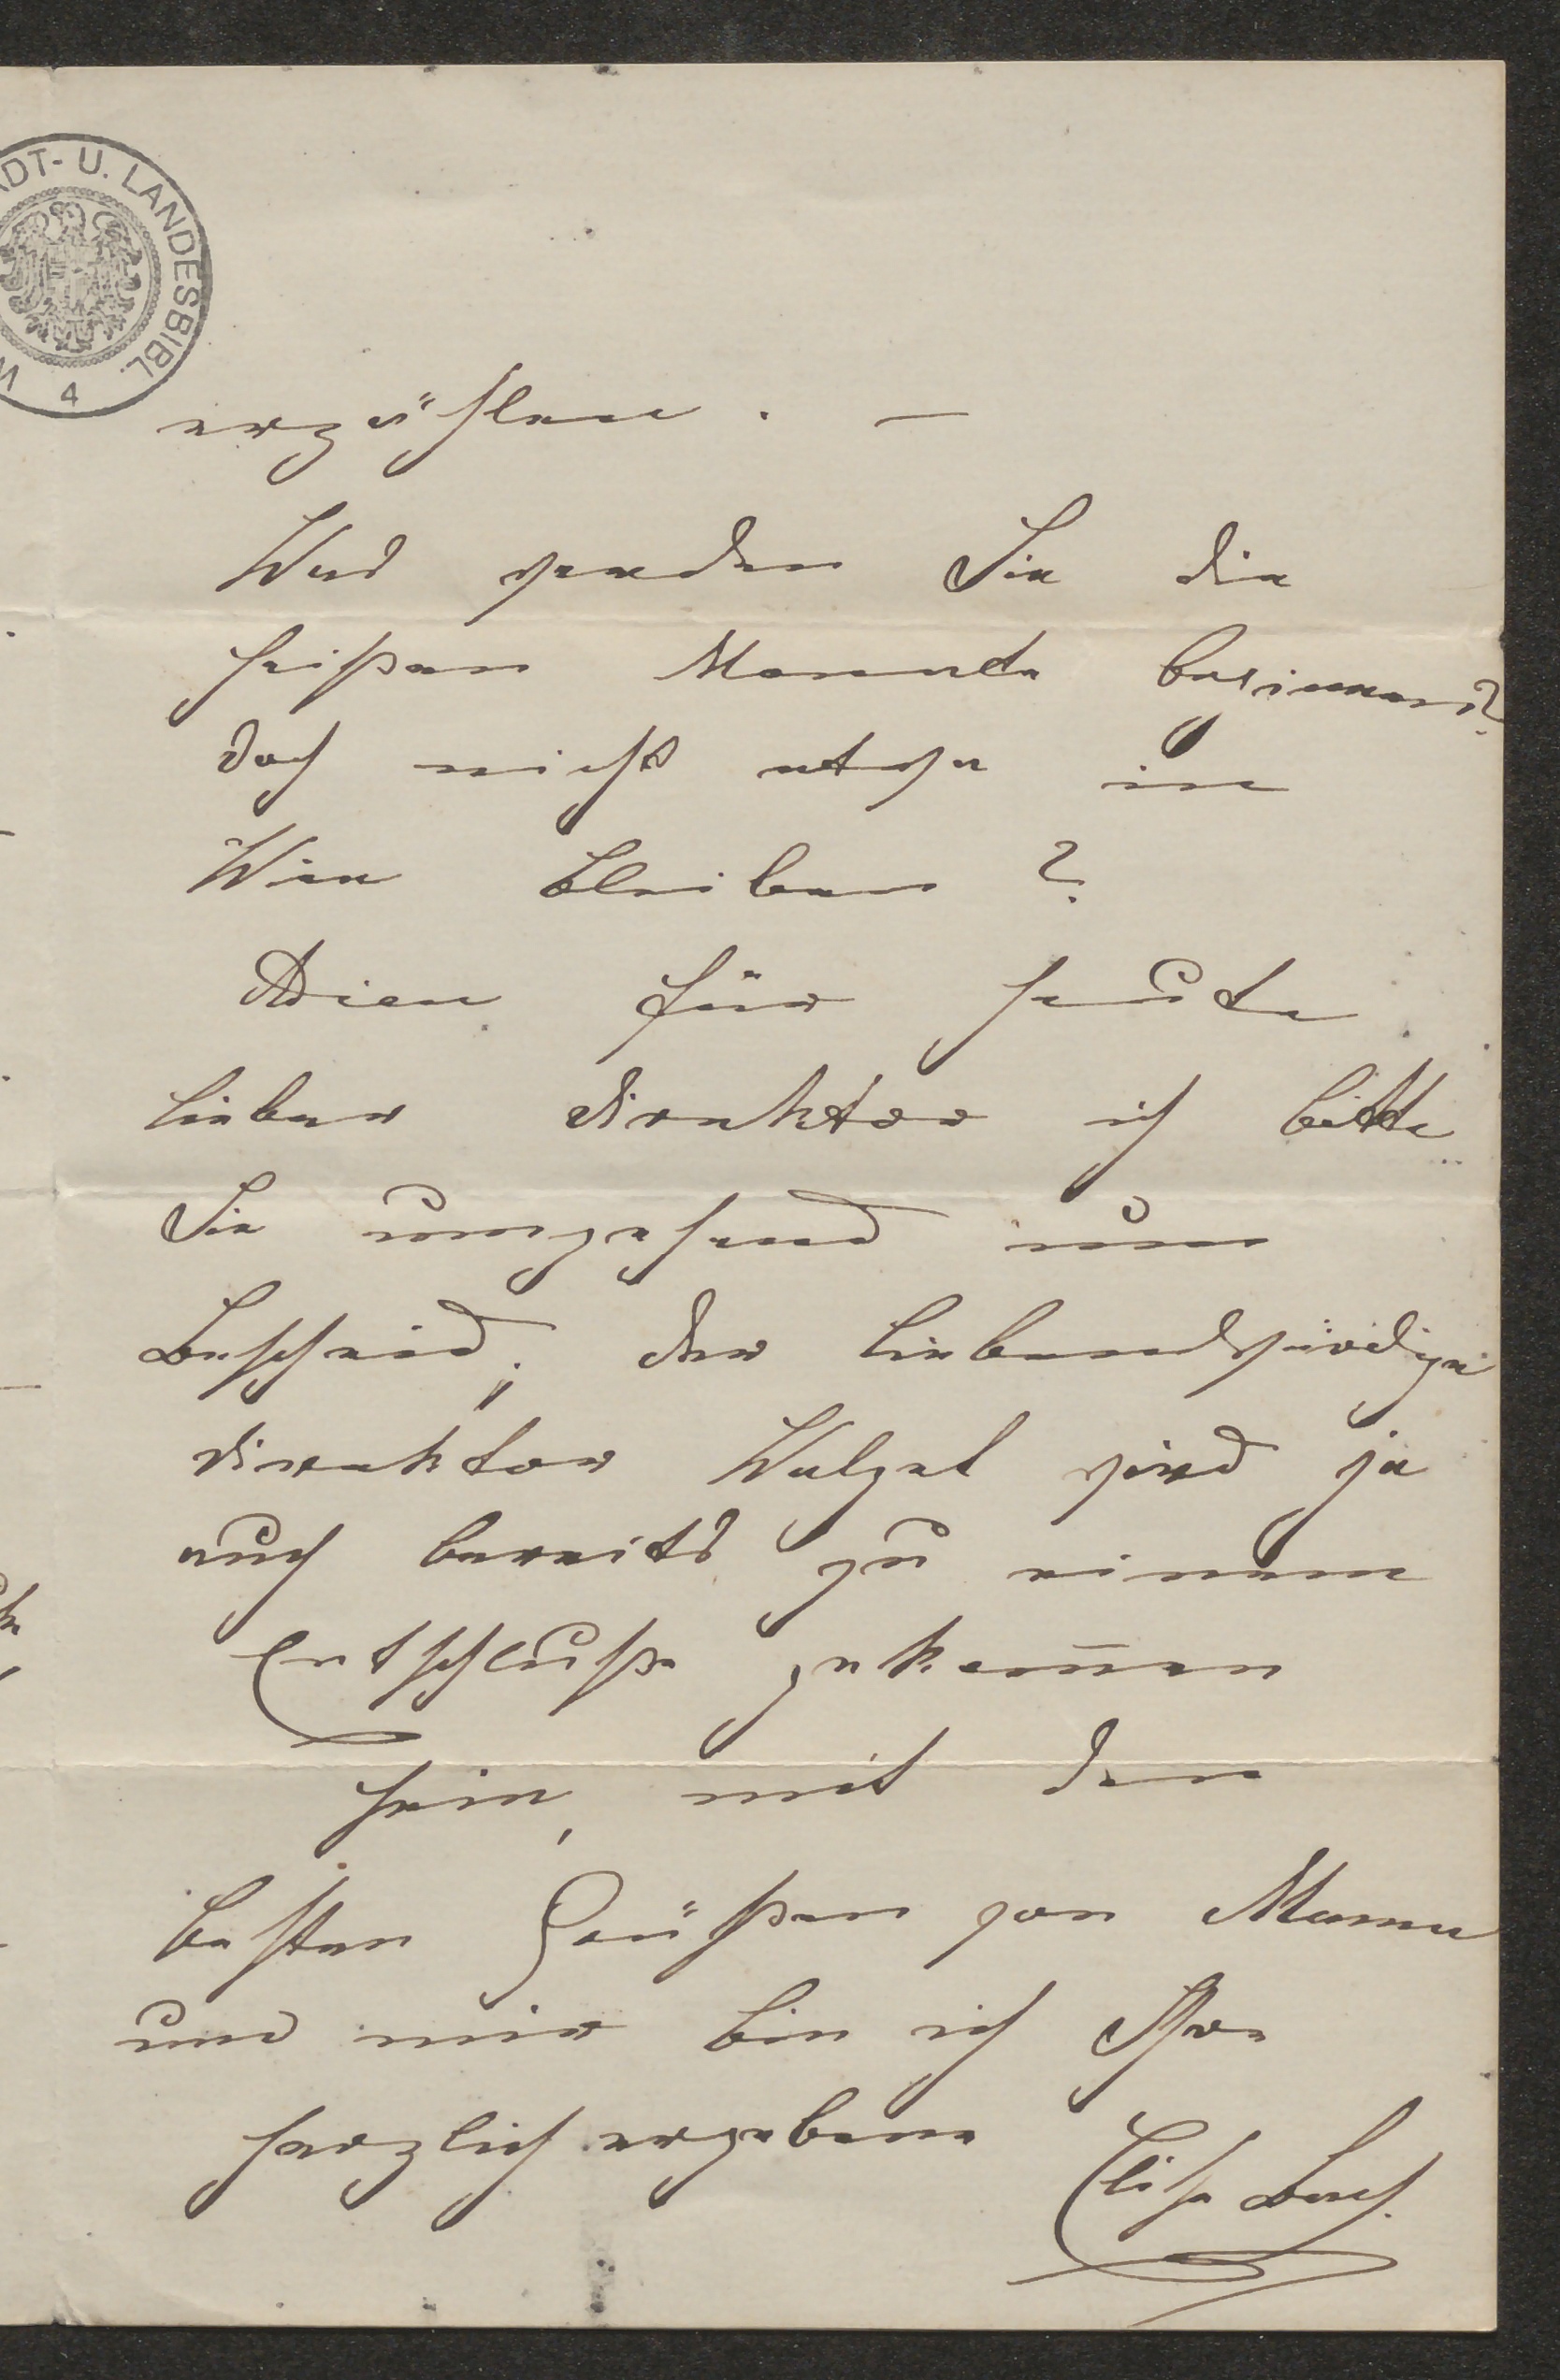 STADT- U. LANDESBIBL.
4
erzählen. —
Was werden Sie die
heißen Monate beginnen?
doch nicht etwa in
Wien bleiben?
Adieu für heute
lieber Direktor ich bitte
Sie umgehend um
Bescheid; der liebenswürdige
Direktor wird ja
auch bereits zu einem
Entschluße gekom̄en
sein, mit den
besten Grüßen von Mama
und mir bin ich Ihre
herzlich ergebene